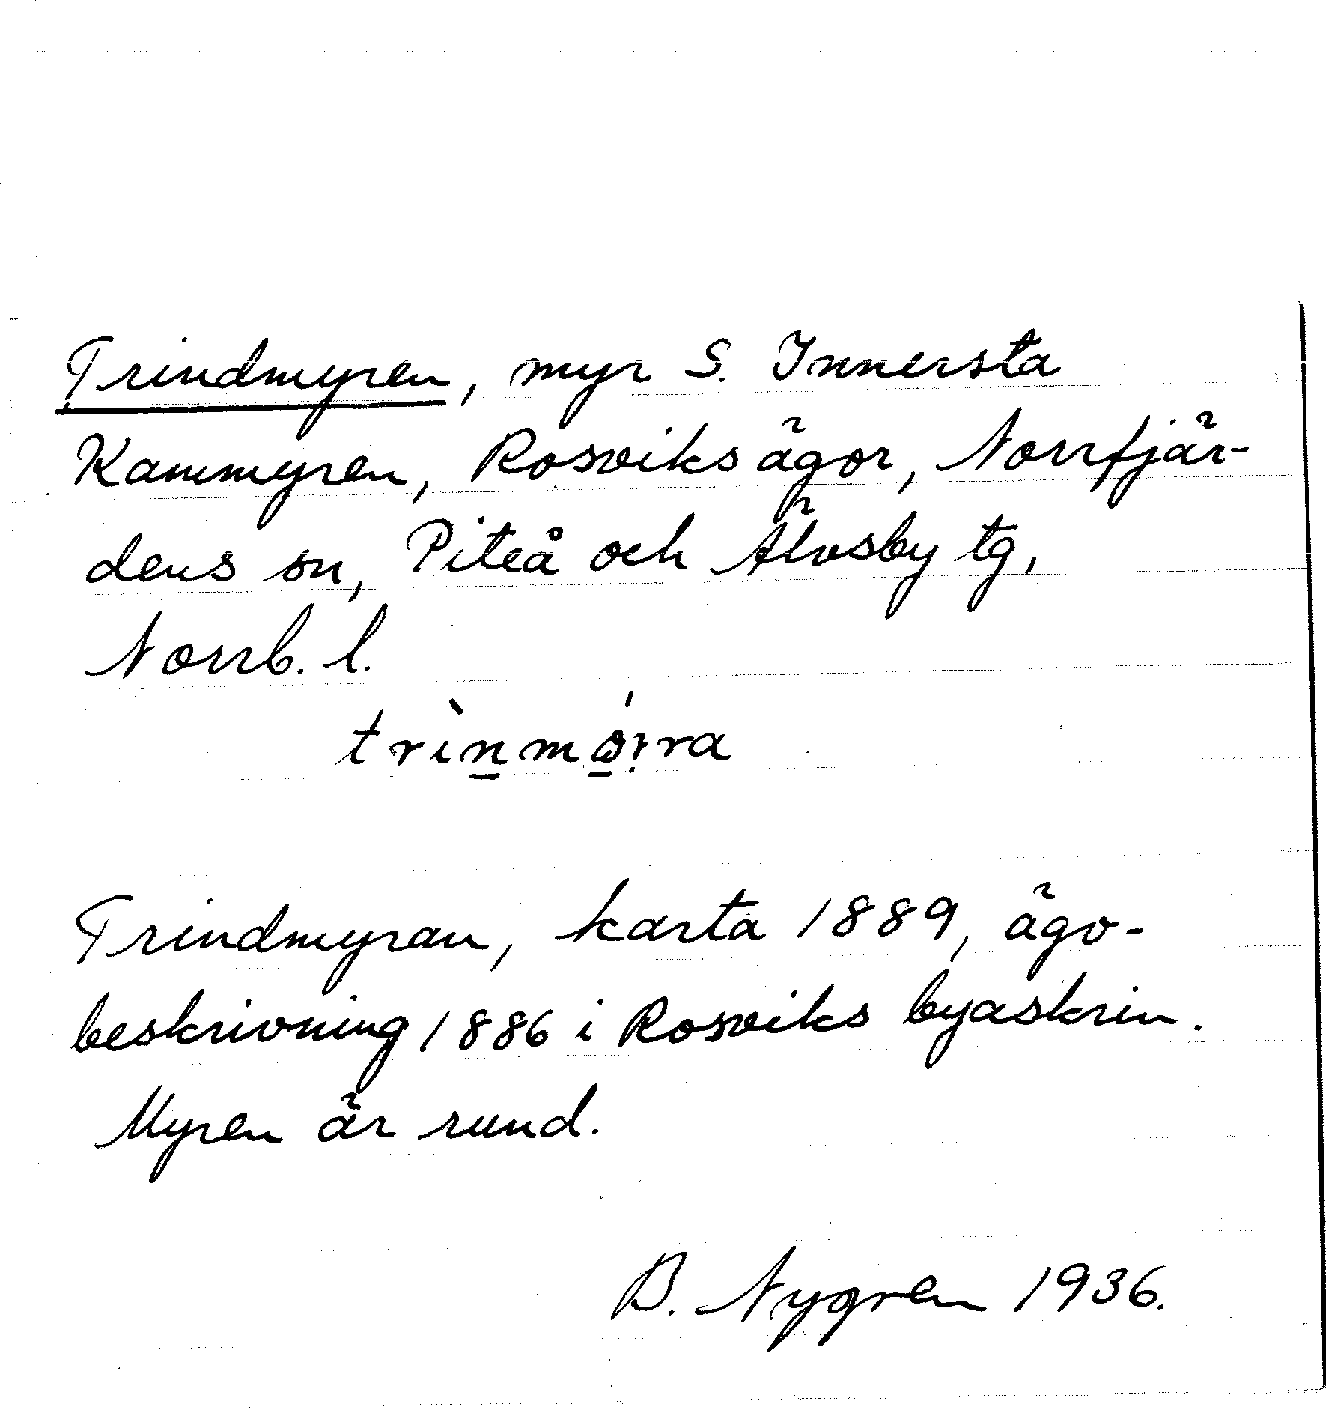 Trindmyren, myr S. Innersta
Kammyren, Rosviks ägor, Norrfjär-
dens sn, Piteå och Älvsby tg,
Norrb. l.
trìn̲mó̲ịra
Trindmyran, karta 1889, ägo-
beskrivning 1886 i Rosviks byaskrin.
Myren är rund.
B. Nygren 1936.